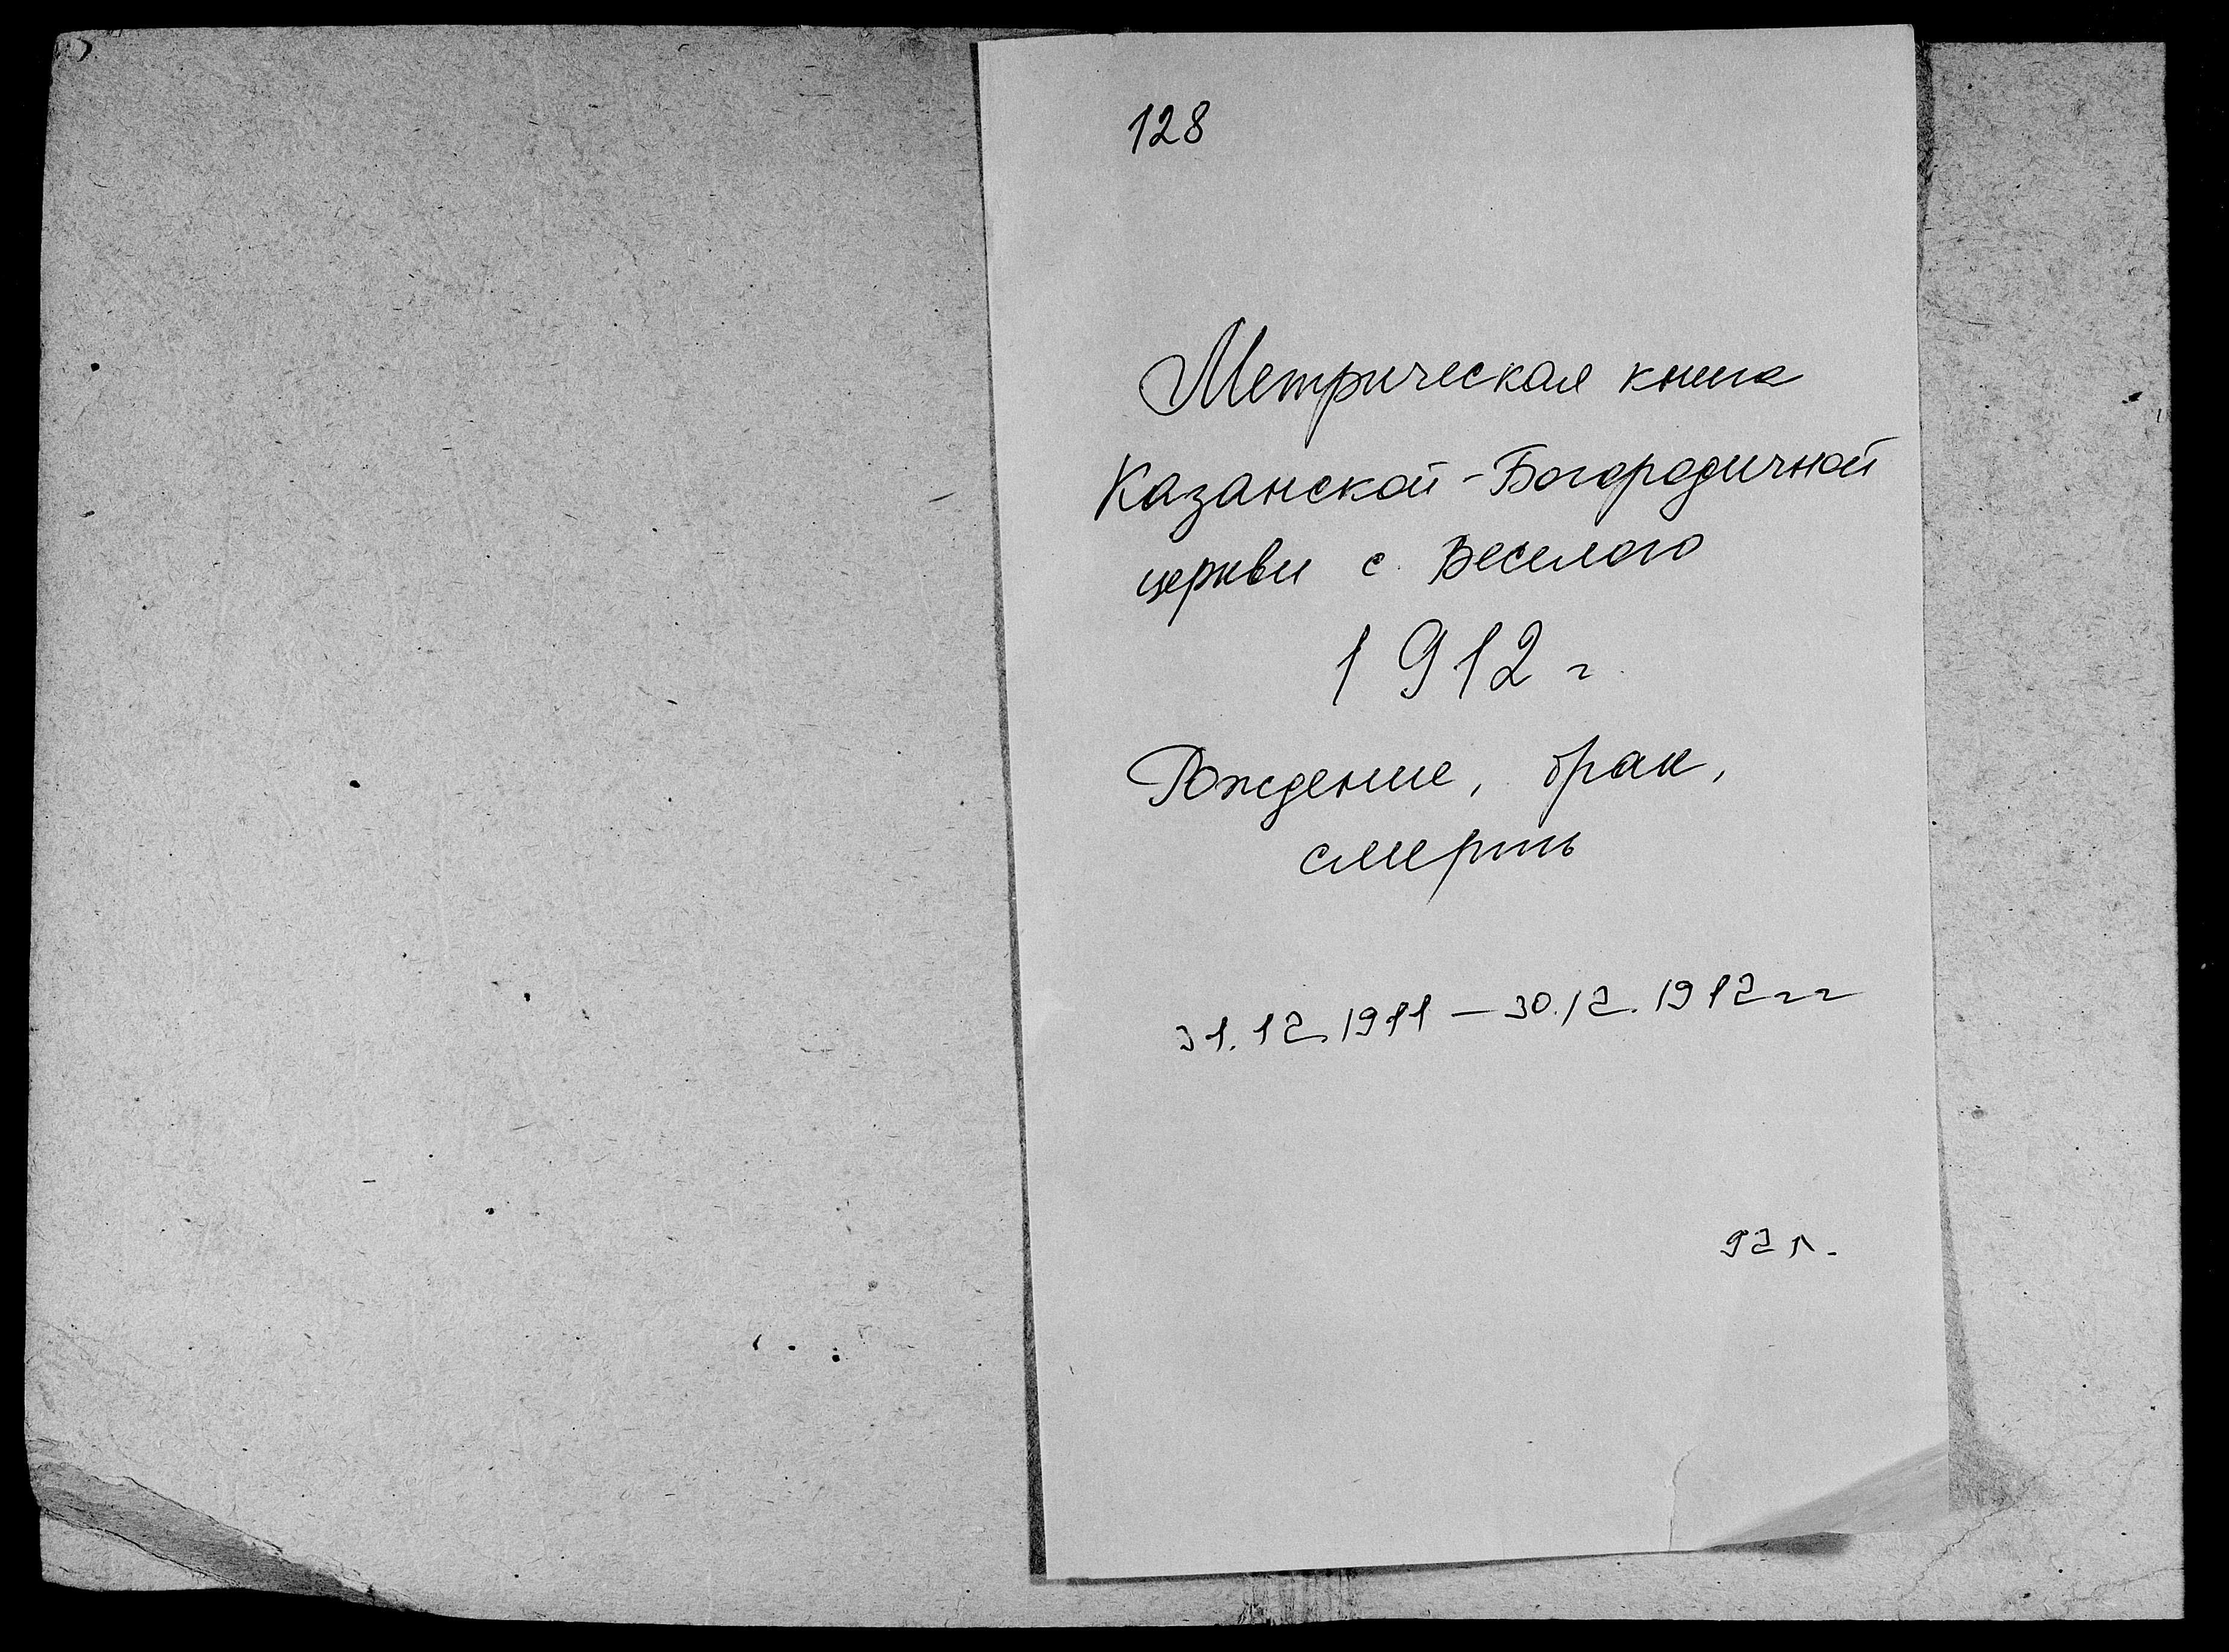 128
Метрическая книга
Казанской-Богородичной
церкви с. Веселого
1912 г.
Рождение, брак,
смерть
31.12.1911 – 30.12.1912 гг
92 л.